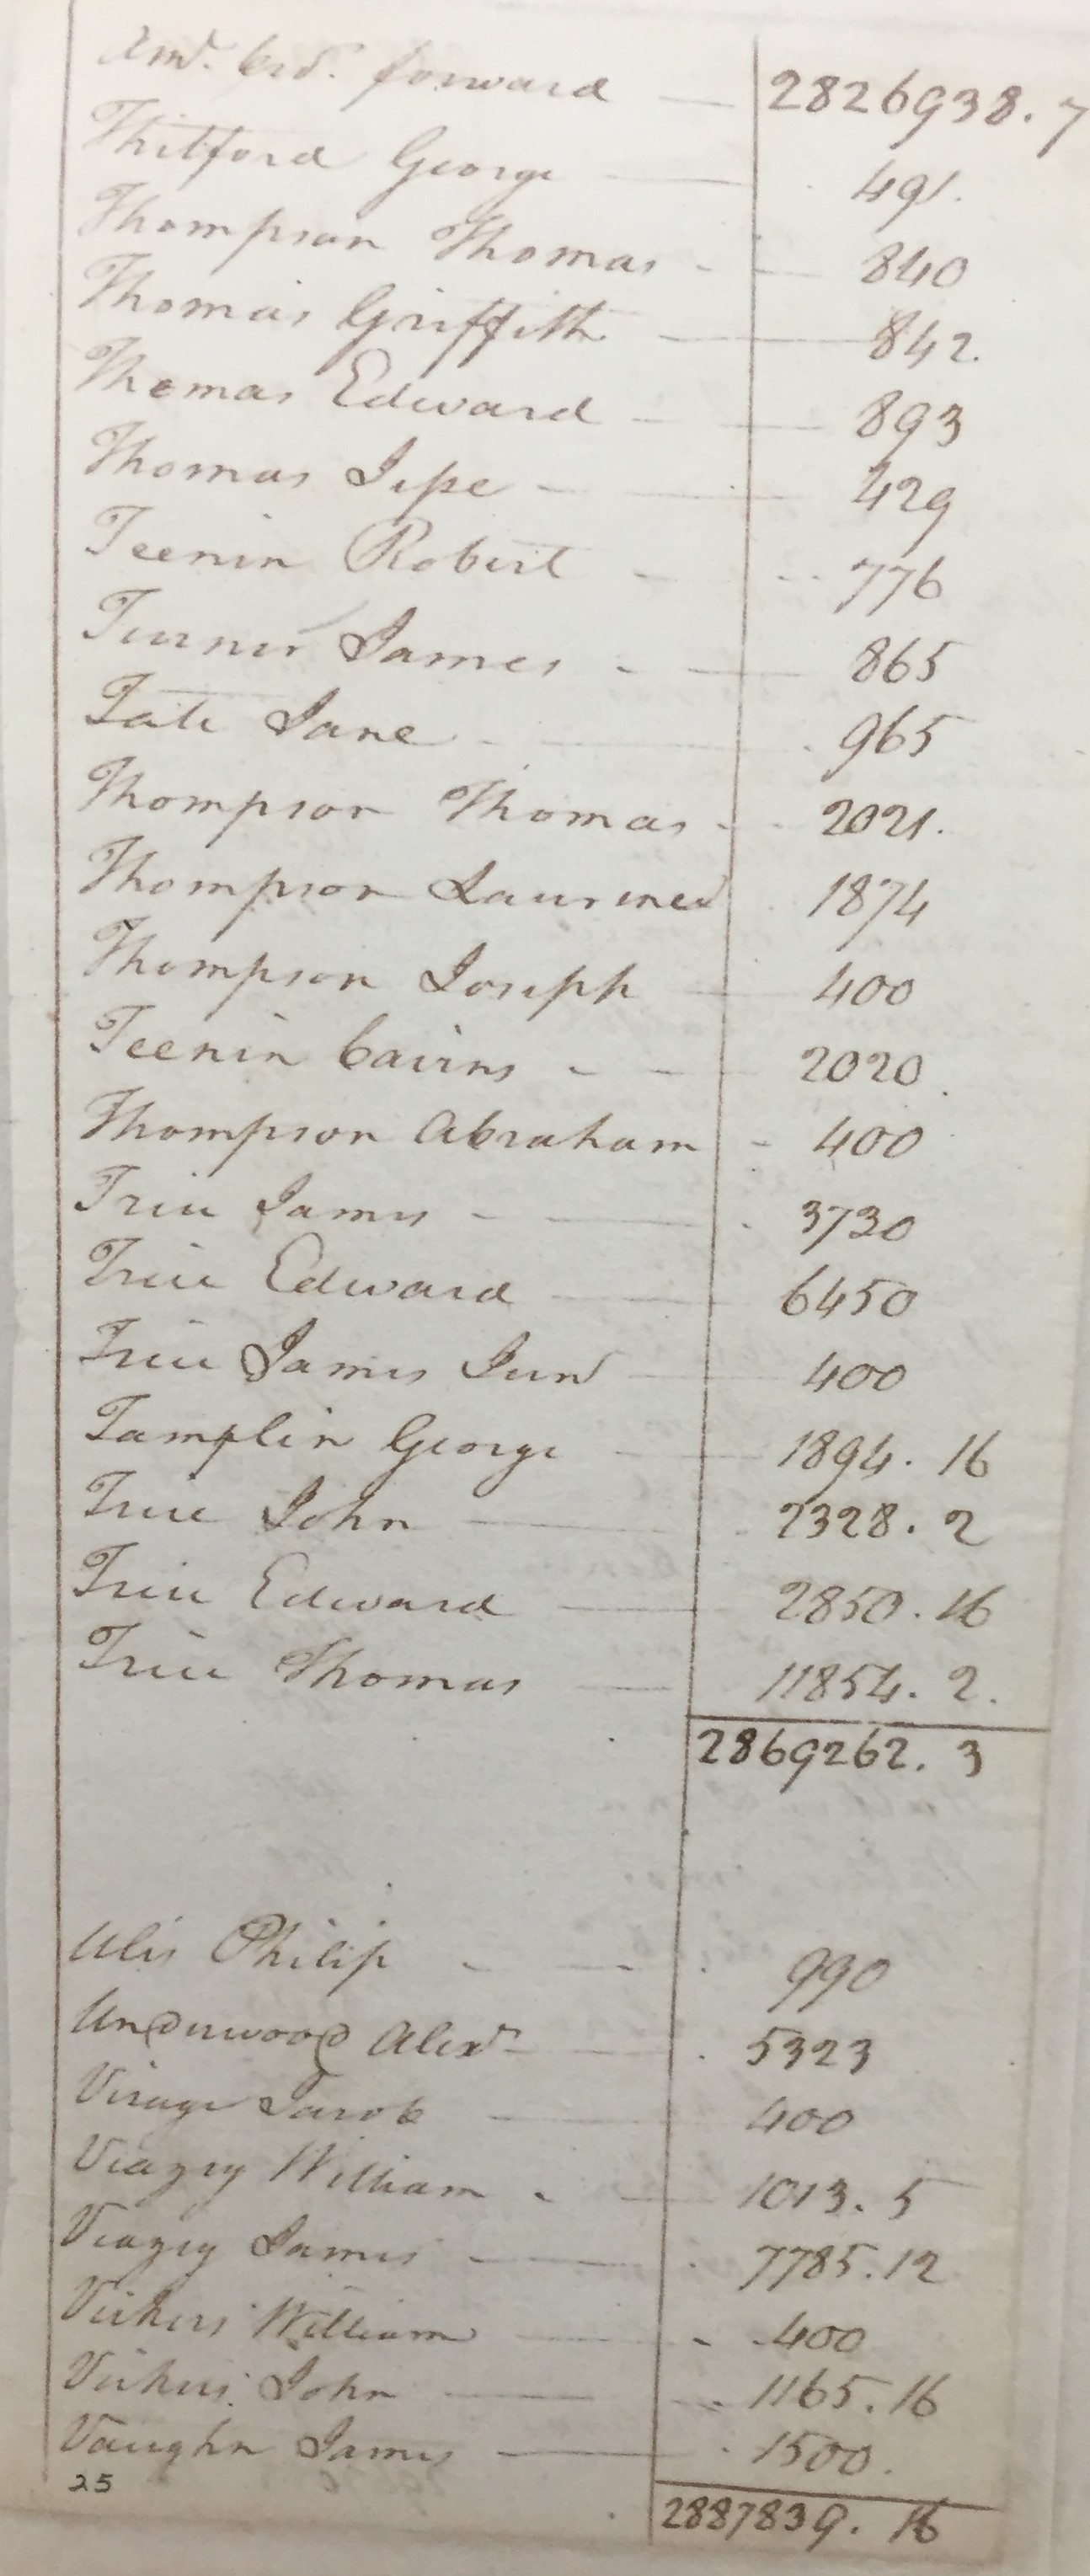 Amt. brd. forward 2826938. 7
Thitford George 491.
Thompson Thomas 840
Thomas Griffith 842.
Thomas Edward 893
Thomas Jesse 429
Teenin Robert 776
Turner James 865
Tate Jane 965
Thompson Thomas 2021.
Thompson Laurence 1874
Thompson Joseph 400
Teenin Cairns 2020
Thompson Abraham 400
Trice James 3730
Trice Edward 6450
Trice James Junr 400
Tamplin George 1894. 16
Trice John 2328. 2
Trice Edward 2850. 16
Trice Thomas 11854. 2.
2869262. 3
Ules Philip 990
Underwood Alexr 5323
Jacob 400
Veazey William 1013. 5
Veazey James 7785. 12
Vickers William 400
Vickers John 1165. 16
Vaughn James 1500.
25
2887839. 16